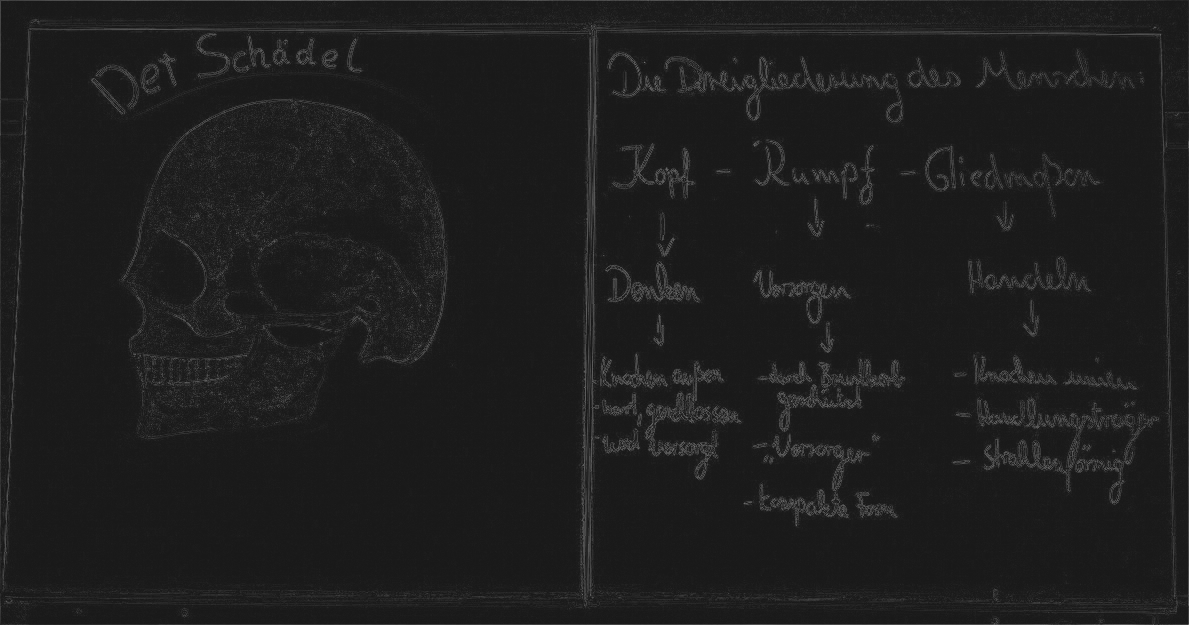 Der Schädel
Die Dreigliederung des Menschen:
Kopf - Rumpf - Gliedmaßen
↓ ↓ ↓
Denken Versorgen Handeln
↓ ↓ ↓
- Knochen außen
- hart, geschlossen
- wird versorgt
- durch Brustkorb
geschützt
- „Versorger“
- kompakte Form
- Knochen innen
- Handlungsträger
- Strahlenförmig